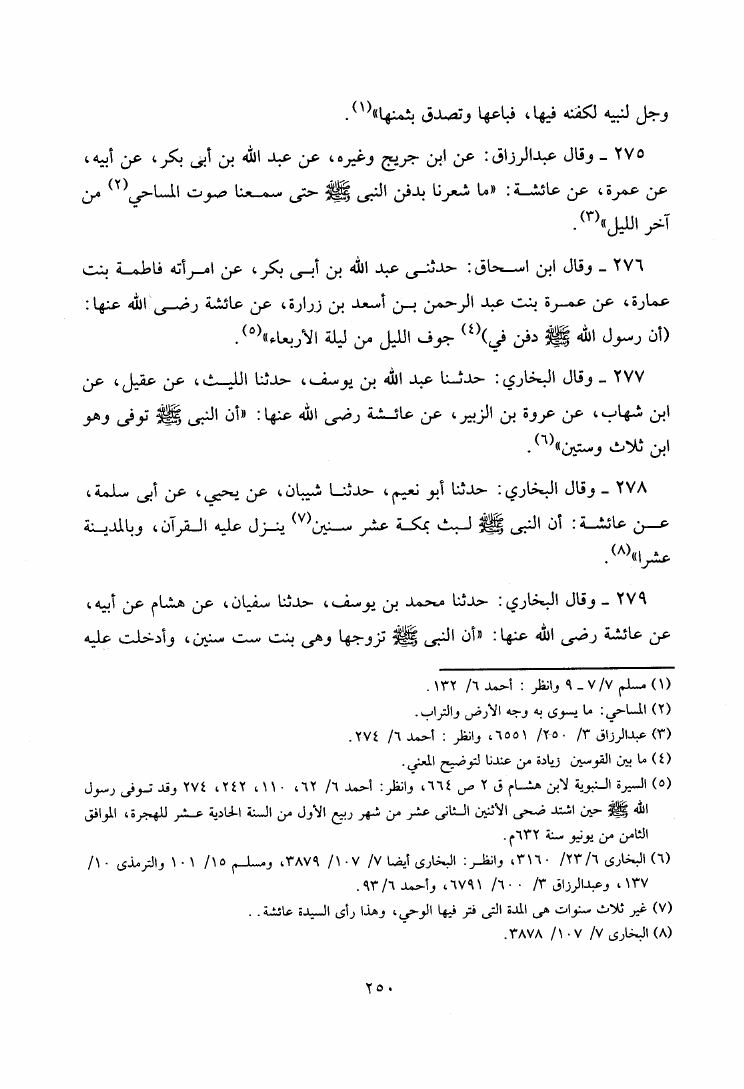 وجل لنبيه لكفنه فيها، فباعها وتصدق بثمنها»(١).
٢٧٥ ـ وقال عبدالرزاق: عن ابن جريج وغيره، عن عبد الله بن أبى بكر، عن أبيه،
عن عمرة، عن عائشة: «ما شعرنا بدفن النبى ﷺ حتى سمعنا صوت المساحي(٢) من
آخر الليل»(٣).
٢٧٦ ـ وقال ابن اسحاق: حدثنى عبد الله بن أبى بكر، عن امرأته فاطمة بنت
عمارة، عن عمرة بنت عبد الرحمن بن أسعد بن زرارة، عن عائشة رضى الله عنها:
(أن رسول الله ﷺ دفن في)(٤) جوف الليل من ليلة الأربعاء»(٥).
٢٧٧ ـ وقال البخاري: حدثنا عبد الله بن يوسف، حدثنا الليث، عن عقيل، عن
ابن شهاب، عن عروة بن الزبير، عن عائشة رضى الله عنها: «أن النبى ﷺ توفى وهو
ابن ثلاث وستين»(٦).
٢٧٨ ـ وقال البخاري: حدثنا أبو نعيم، حدثنا شيبان، عن يحيي، عن أبى سلمة،
عن عائشة: أن النبى ﷺ لبث بمكة عشر سنين(٧) ينزل عليه القرآن، وبالمدينة
عشرا»(٨).
٢٧٩ ـ وقال البخاري: حدثنا محمد بن يوسف، حدثنا سفيان، عن هشام عن أبيه،
عن عائشة رضى الله عنها: «أن النبى ﷺ تزوجها وهى بنت ست سنين، وأدخلت عليه
(١) مسلم ٧/٧ ـ ٩ وانظر : أحمد ٦/ ١٣٢.
(٢) المساحي: ما يسوى به وجه الأرض والتراب.
(٣) عبدالرزاق ٣/ ٢٥٠/ ٦٥٥١، وانظر : أحمد ٦/ ٢٧٤.
(٤) ما بين القوسين زيادة من عندنا لتوضيح المعني.
(٥) السيرة النبوية لابن هشام ق ٢ ص ٦٦٤، وانظر: أحمد ٦/ ٦٢، ١١٠، ٢٤٢، ٢٧٤ وقد توفى رسول
الله ﷺ حين اشتد ضحى الأثنين الثانى عشر من شهر ربيع الأول من السنة الحادية عشر للهجرة، الموافق
الثامن من يونيو سنة ٦٣٢م.
(٦) البخارى ٢٣/٦/ ٣١٦٠، وانظر: البخارى أيضا ٧/ ١٠٧/ ٣٨٧٩، ومسلم ١٥/ ١٠١ والترمذى ١٠/
١٣٧، وعبدالرزاق ٣/ ٦٠٠/ ٦٧٩١، وأحمد ٩٣/٦.
(٧) غير ثلاث سنوات هى المدة التى فتر فيها الوحي، وهذا رأى السيدة عائشة. .
(٨) البخارى ٧/ ١٠٧/ ٣٨٧٨.
٢٥٠